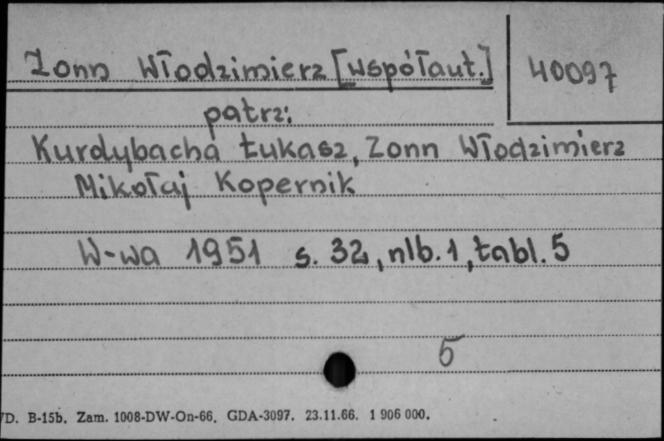 Zonn Włodzimierz [współaut.]
40097
patrz:
Kurdybacha Łukasz, Zonn Włodzimierz
Mikołaj Kopernik
W-wa 1951 s. 32, nlb. 1, tabl. 5
5
/D. B-15b. Zam. 1008-DW-On-66. GDA-3097. 23.11.66. 1 906 000.